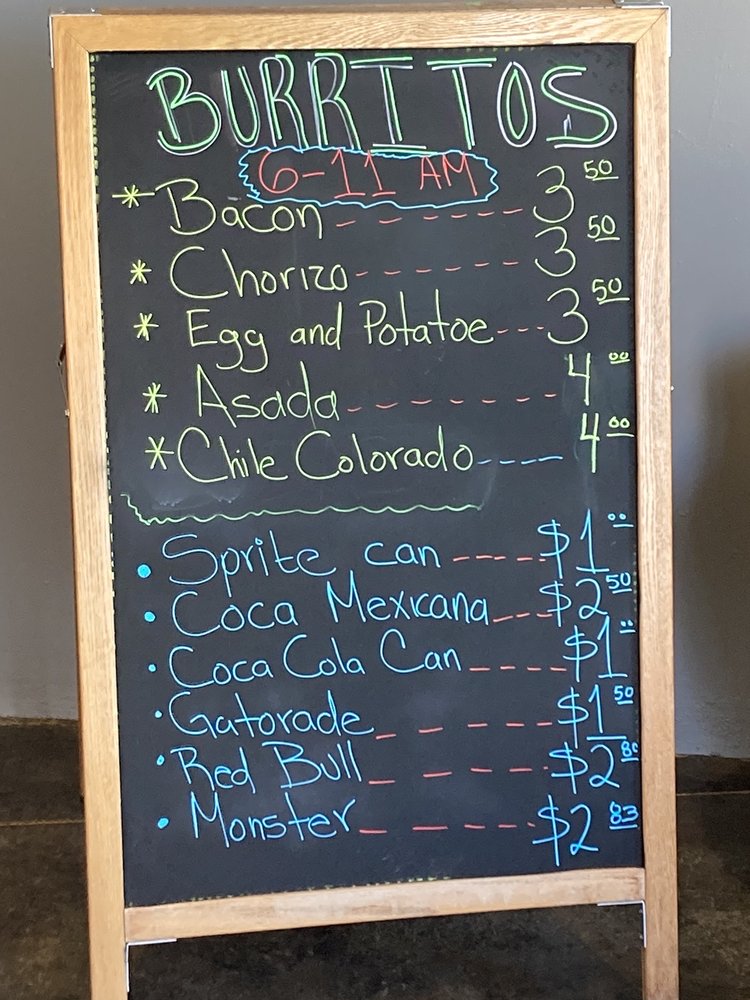 BURRITOS
6-11 AM
* Bacon ------ 3 50
* Chorizo ------ 3 50
* Egg and Potatoe --- 3 50
* Asada ------- 4 00
* Chile Colorado ---- 4 00
• Sprite can ---- $1 00
• Coca Mexicana --- $2 50
• Coca Cola Can ---- $1 00
• Gatorade ----- $1 50
• Red Bull ---- $2 80
• Monster ----- $2 83